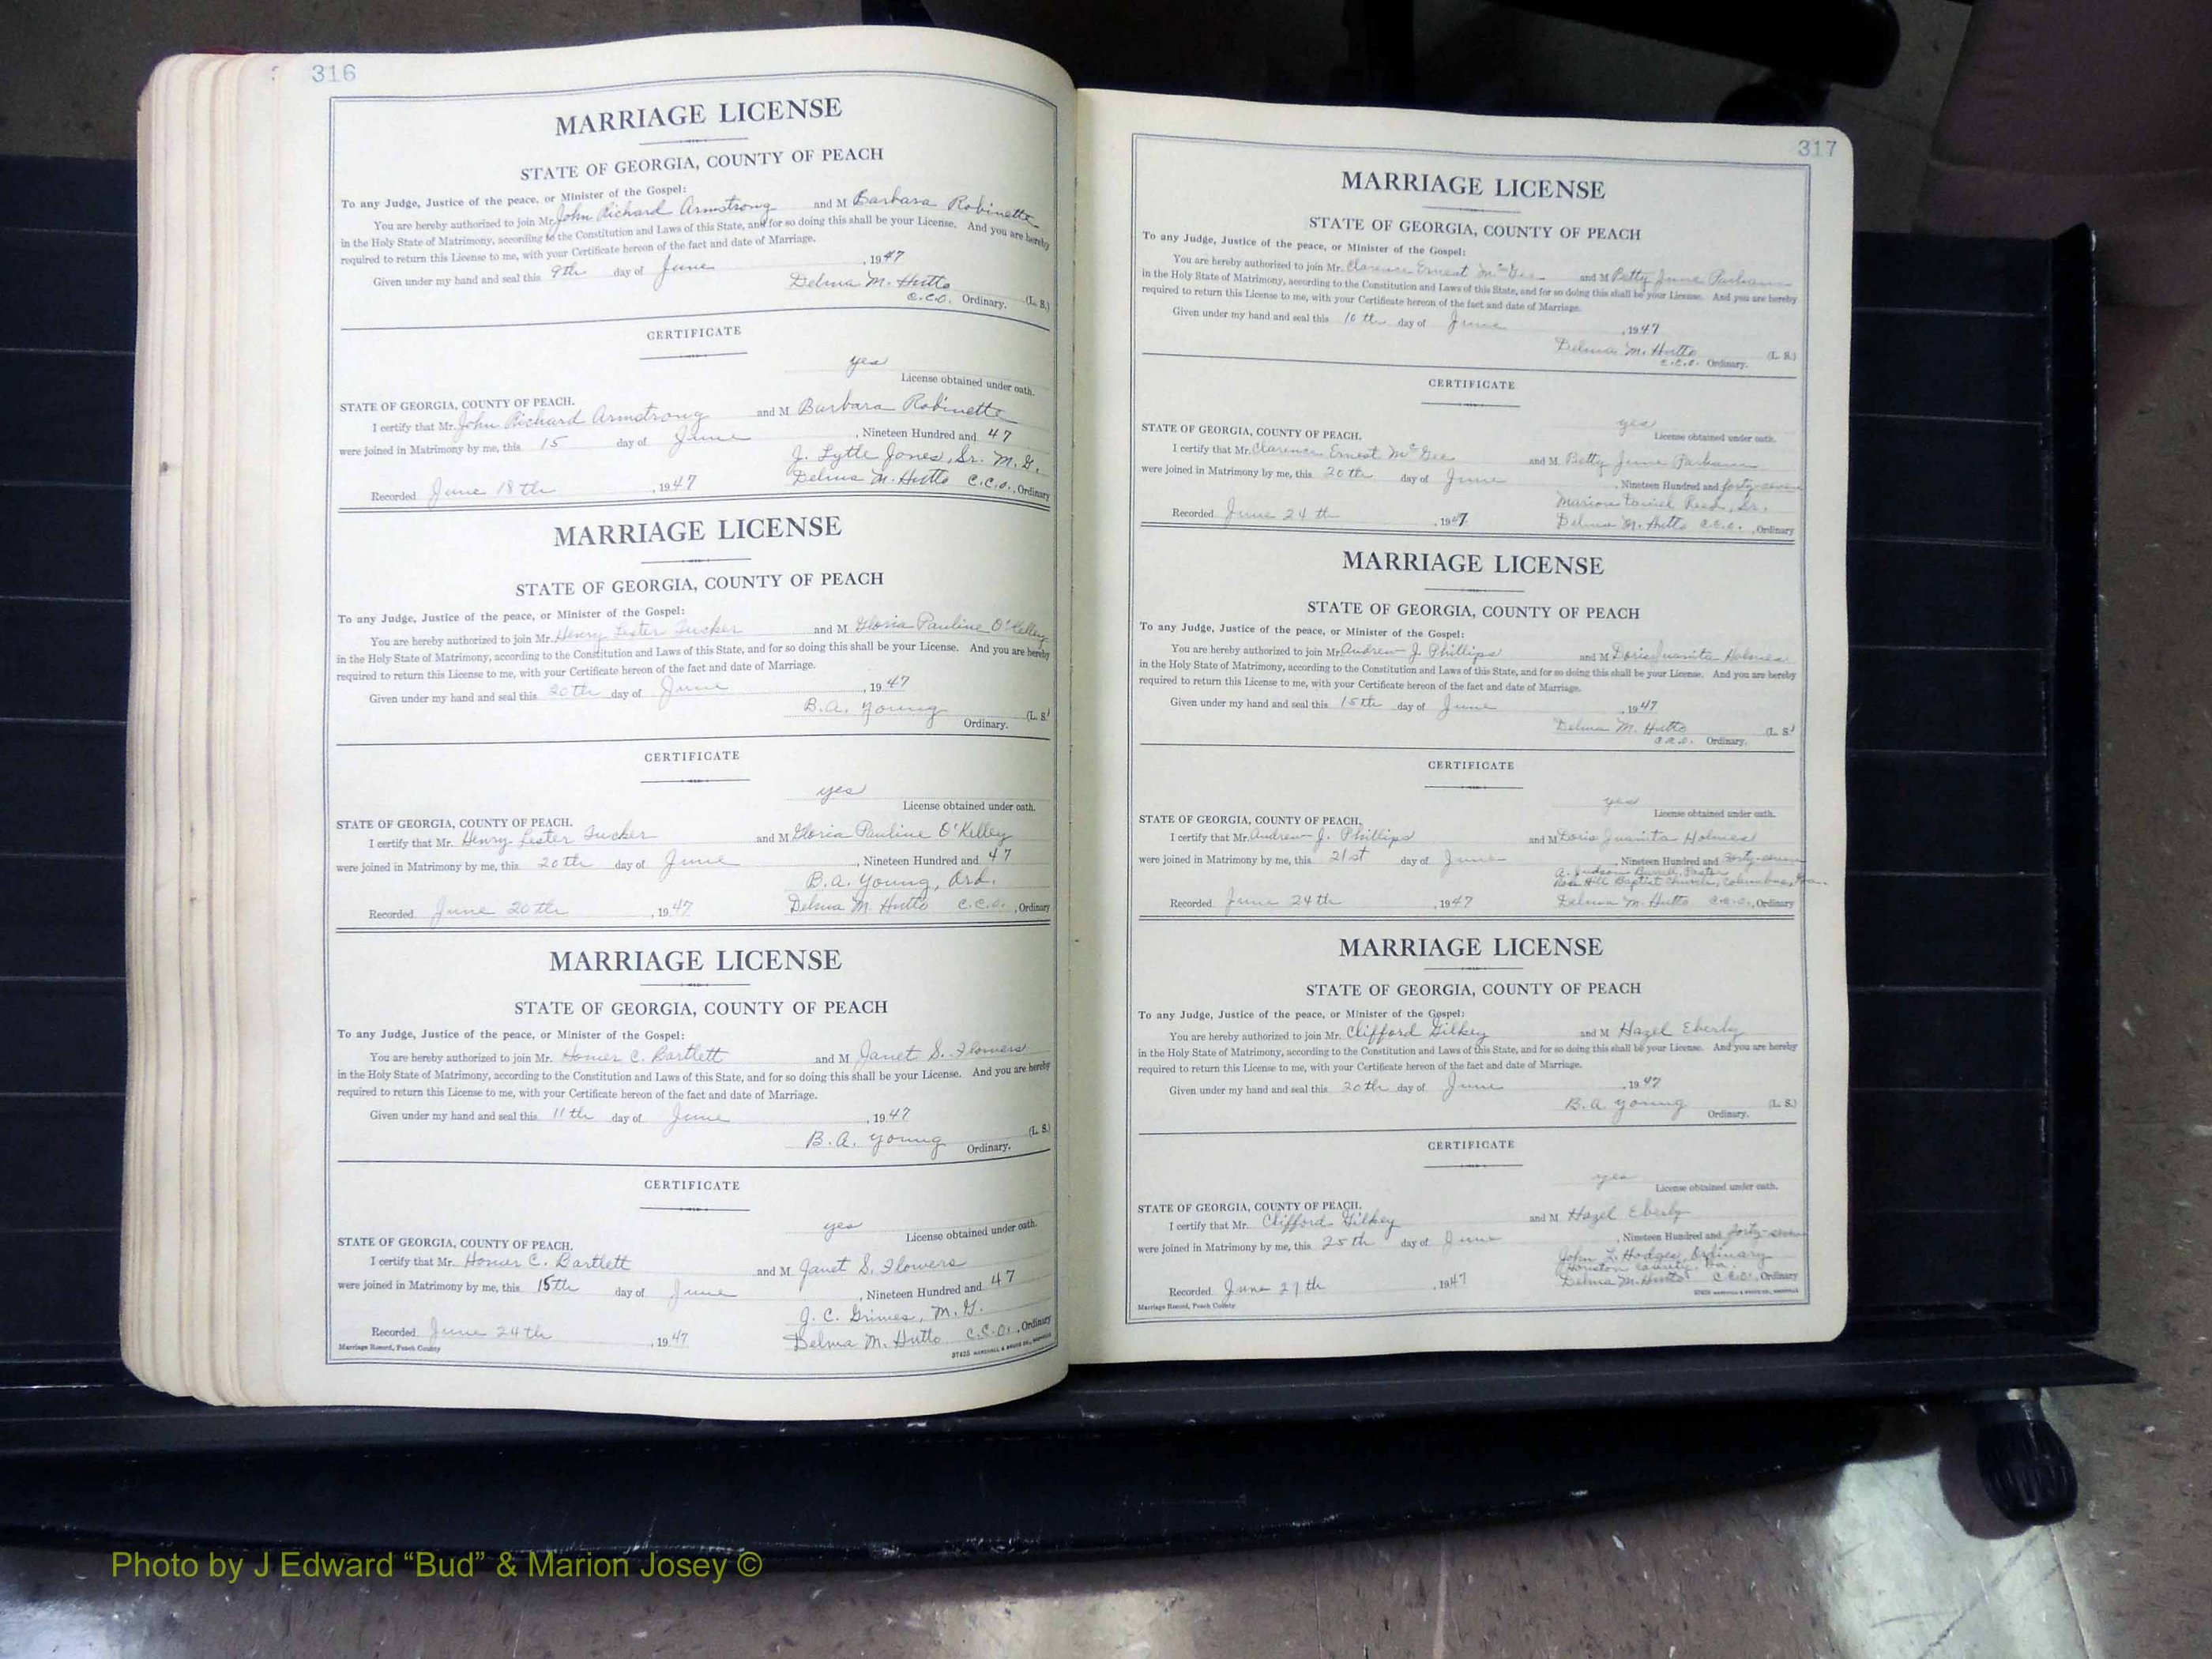 316
MARRIAGE LICENSE
STATE OF GEORGIA, COUNTY OF PEACH
To any Judge, Justice of the peace, or Minister of the Gospel:
You are hereby authorized to join Mr. John Richard Armstrong and M Barbara Robinette
in the Holy State of Matrimony, according to the Constitution and Laws of this State, and for so doing this shall be your License. And you are hereby
required to return this License to me, with your Certificate hereon of the fact and date of Marriage.
Given under my hand and seal this 9th day of June, 1947
Delma M. Hutto
C.C.O. Ordinary. (L. S.)
CERTIFICATE
yes
License obtained under oath.
STATE OF GEORGIA, COUNTY OF PEACH.
I certify that Mr. John Richard Armstrong and M Barbara Robinette
were joined in Matrimony by me, this 15 day of June, Nineteen Hundred and 47
J. Lytle Jones, Sr. M.G.
Recorded June 18th, 1947 Delma M. Hutto C.C.O., Ordinary
MARRIAGE LICENSE
STATE OF GEORGIA, COUNTY OF PEACH
To any Judge, Justice of the peace, or Minister of the Gospel:
You are hereby authorized to join Mr. Henry Lester Tucker and M Gloria Pauline O'Kelley
in the Holy State of Matrimony, according to the Constitution and Laws of this State, and for so doing this shall be your License. And you are hereby
required to return this License to me, with your Certificate hereon of the fact and date of Marriage.
Given under my hand and seal this 20th day of June, 1947
B.A. Young (L. S.)
Ordinary.
CERTIFICATE
yes
License obtained under oath.
STATE OF GEORGIA, COUNTY OF PEACH.
I certify that Mr. Henry Lester Tucker and M Gloria Pauline O'Kelley
were joined in Matrimony by me, this 20th day of June, Nineteen Hundred and 47
B.A. Young, Ord.
Recorded June 20th, 1947 Delma M. Hutto C.C.O., Ordinary
MARRIAGE LICENSE
STATE OF GEORGIA, COUNTY OF PEACH
To any Judge, Justice of the peace, or Minister of the Gospel:
You are hereby authorized to join Mr. Homer C. Bartlett and M Janet S. Flowers
in the Holy State of Matrimony, according to the Constitution and Laws of this State, and for so doing this shall be your License. And you are hereby
required to return this License to me, with your Certificate hereon of the fact and date of Marriage.
Given under my hand and seal this 11th day of June, 1947
B.A. Young (L. S.)
Ordinary.
CERTIFICATE
yes
License obtained under oath.
STATE OF GEORGIA, COUNTY OF PEACH.
I certify that Mr. Homer C. Bartlett and M Janet S. Flowers
were joined in Matrimony by me, this 15th day of June, Nineteen Hundred and 47
J. C. Grimes, M.G.
Recorded June 24th, 1947 Delma M. Hutto C.C.O., Ordinary
Marriage Record, Peach County
317
MARRIAGE LICENSE
STATE OF GEORGIA, COUNTY OF PEACH
To any Judge, Justice of the peace, or Minister of the Gospel:
You are hereby authorized to join Mr. Clarence Ernest McGee and M Betty June Parham
in the Holy State of Matrimony, according to the Constitution and Laws of this State, and for so doing this shall be your License. And you are hereby
required to return this License to me, with your Certificate hereon of the fact and date of Marriage.
Given under my hand and seal this 10th day of June, 1947
Delma M. Hutto (L. S.)
C.C.O. Ordinary.
CERTIFICATE
yes
License obtained under oath.
STATE OF GEORGIA, COUNTY OF PEACH.
I certify that Mr. Clarence Ernest McGee and M Betty June Parham
were joined in Matrimony by me, this 20th day of June, Nineteen Hundred and forty-seven
Marion Daniel Reed, Sr.
Recorded June 24th, 1947 Delma M. Hutto C.C.O., Ordinary
MARRIAGE LICENSE
STATE OF GEORGIA, COUNTY OF PEACH
To any Judge, Justice of the peace, or Minister of the Gospel:
You are hereby authorized to join Mr. Andrew J. Phillips and M Doris Juanita Holmes
in the Holy State of Matrimony, according to the Constitution and Laws of this State, and for so doing this shall be your License. And you are hereby
required to return this License to me, with your Certificate hereon of the fact and date of Marriage.
Given under my hand and seal this 15th day of June, 1947
Delma M. Hutto (L. S.)
C.C.O. Ordinary.
CERTIFICATE
yes
License obtained under oath.
STATE OF GEORGIA, COUNTY OF PEACH.
I certify that Mr. Andrew J. Phillips and M Doris Juanita Holmes
were joined in Matrimony by me, this 21st day of June, Nineteen Hundred and Forty-seven
A. Judson Burrell, Pastor
Rose Hill Baptist Church, Columbus, Ga.
Recorded June 24th, 1947 Delma M. Hutto C.C.O., Ordinary
MARRIAGE LICENSE
STATE OF GEORGIA, COUNTY OF PEACH
To any Judge, Justice of the peace, or Minister of the Gospel:
You are hereby authorized to join Mr. Clifford Gilkey and M Hazel Eberly
in the Holy State of Matrimony, according to the Constitution and Laws of this State, and for so doing this shall be your License. And you are hereby
required to return this License to me, with your Certificate hereon of the fact and date of Marriage.
Given under my hand and seal this 20th day of June, 1947
B.A. Young (L. S.)
Ordinary.
CERTIFICATE
yes
License obtained under oath.
STATE OF GEORGIA, COUNTY OF PEACH.
I certify that Mr. Clifford Gilkey and M Hazel Eberly
were joined in Matrimony by me, this 25th day of June, Nineteen Hundred and forty-seven
John L. Hodges, Ordinary
Houston County, Ga.
Recorded June 27th, 1947 Delma M. Hutto C.C.O., Ordinary
Marriage Record, Peach County
Photo by J Edward “Bud” & Marion Josey ©